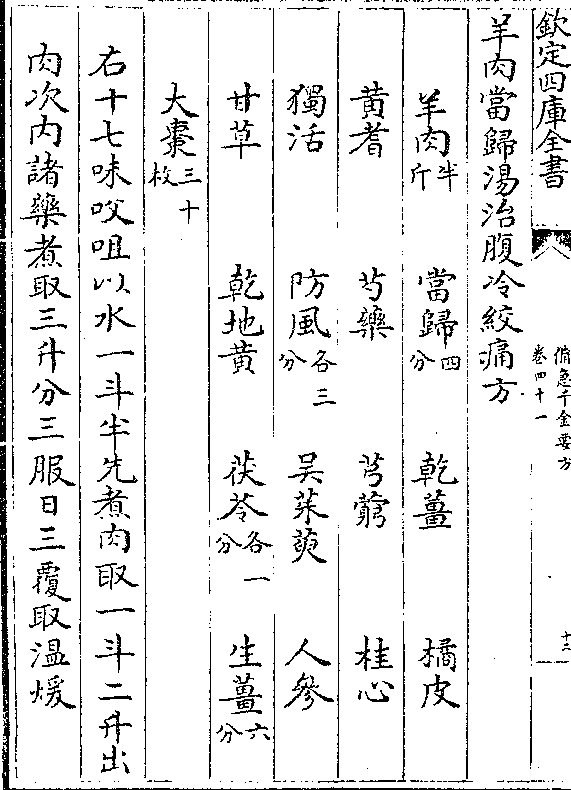 欽定四庫全書
備急千金要方
卷四十一
十三
羊肉當歸湯治腹冷絞痛方
羊肉半斤 當歸四分 乾薑 橘皮
黄耆 芍藥 芎藭 桂心
獨活 防風各三分 吳茱萸 人參
甘草 乾地黄 茯苓各一分 生薑六分
大棗三十枚
右十七味㕮咀以水一斗半先煮肉取一斗二升出
肉次内諸藥煮取三升分三服日三覆取温煖